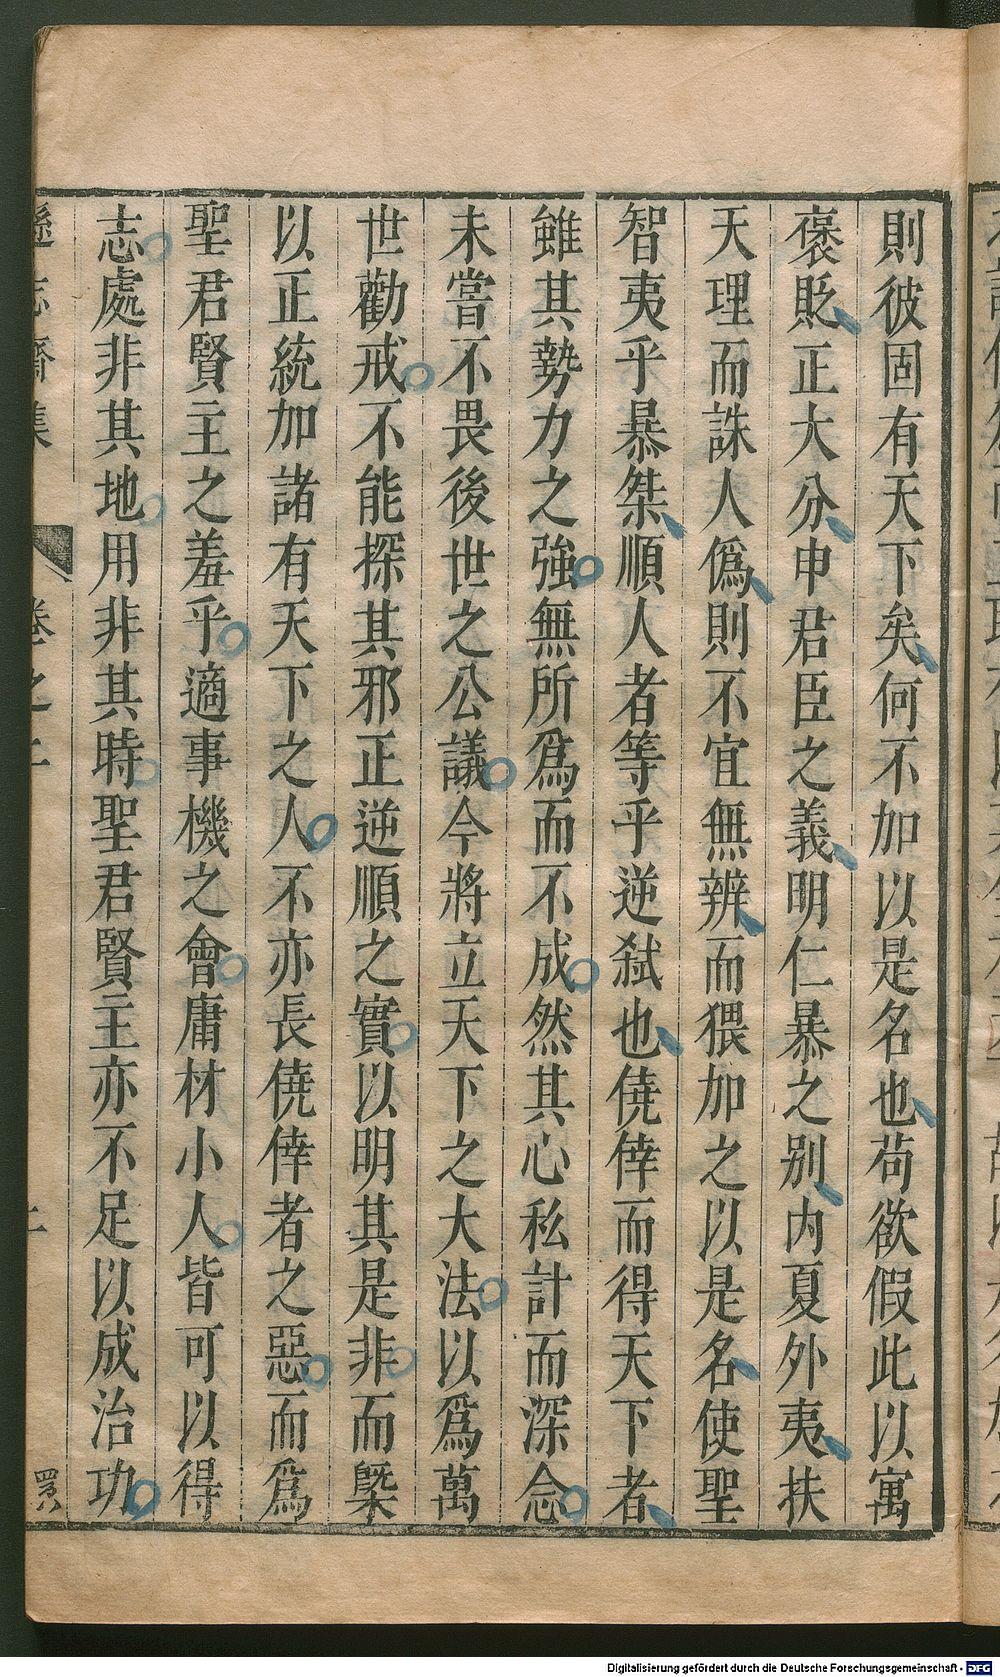 則彼固有天下矣何不加以是名也苟欲假此以寓
褒貶正大分申君臣之義明仁暴之别内夏外夷扶
天理而誅人僞則不宜無辨而猥加之以是名使聖
智夷乎暴桀順人者等乎逆弑也僥倖而得天下者
雖其勢力之強無所爲而不成然其心私計而深念
未嘗不畏後世之公議今將立天下之大法以爲萬
世勸戒不能探其邪正逆順之實以明其是非而槩
以正統加諸有天下之人不亦長僥倖者之惡而爲
聖君賢主之羞乎適事機之會庸材小人皆可以得
志處非其地用非其時聖君賢主亦不足以成治功
遜志齋集 卷之二
Digitalisierung gefördert durch die Deutsche Forschungsgemeinschaft - DFG